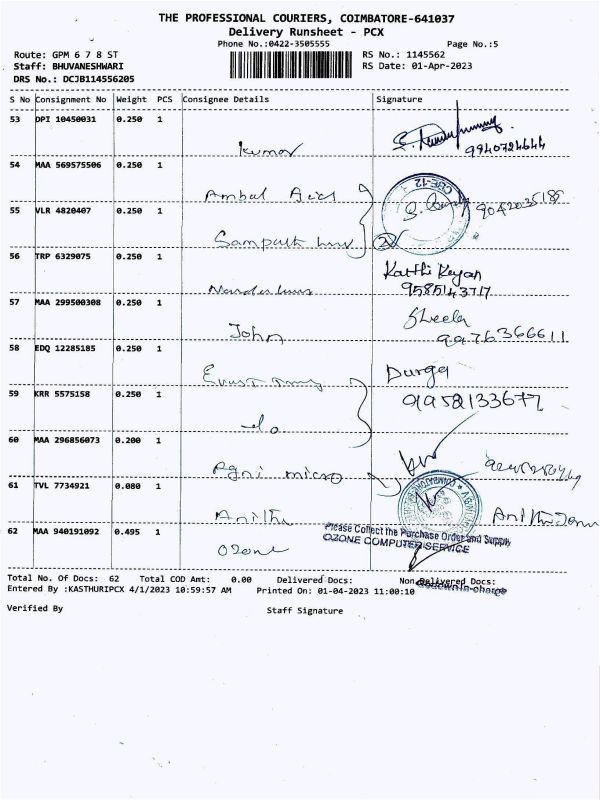 THE PROFESSIONAL COURIERS, COIMBATORE-641037
Delivery Runsheet - PCX
Phone No.:0422-3505555 Page No.:5
Route: GPM 6 7 8 ST RS No.: 1145562
Staff: BHUVANESHWARI RS Date: 01-Apr-2023
DRS No.: DCJB114556205
S No Consignment No Weight PCS Consignee Details Signature
53 DPI 10450031 0.250 1
Kumar 9940724644
54 MAA 569575506 0.250 1
Ambal Acid
55 VLR 4820407 0.250 1
Sampath
56 TRP 6329075 0.250 1 Karthi Keyan
9585143717
57 MAA 299500308 0.250 1 Sheela
John 9976366611
58 EDQ 12285185 0.250 1
Durga
59 KRR 5575158 0.250 1 9952133677
do
60 MAA 296856073 0.200 1
Agni micro
61 TVL 7734921 0.080 1
Anitha
62 MAA 940191092 0.495 1 Please Collect the Purchase Order and Supply
Ozone OZONE COMPUTER SERVICE
Total No. Of Docs: 62 Total COD Amt: 0.00 Delivered Docs: Non Delivered Docs:
Entered By :KASTHURIPCX 4/1/2023 10:59:57 AM Printed On: 01-04-2023 11:00:10
Verified By Staff Signature